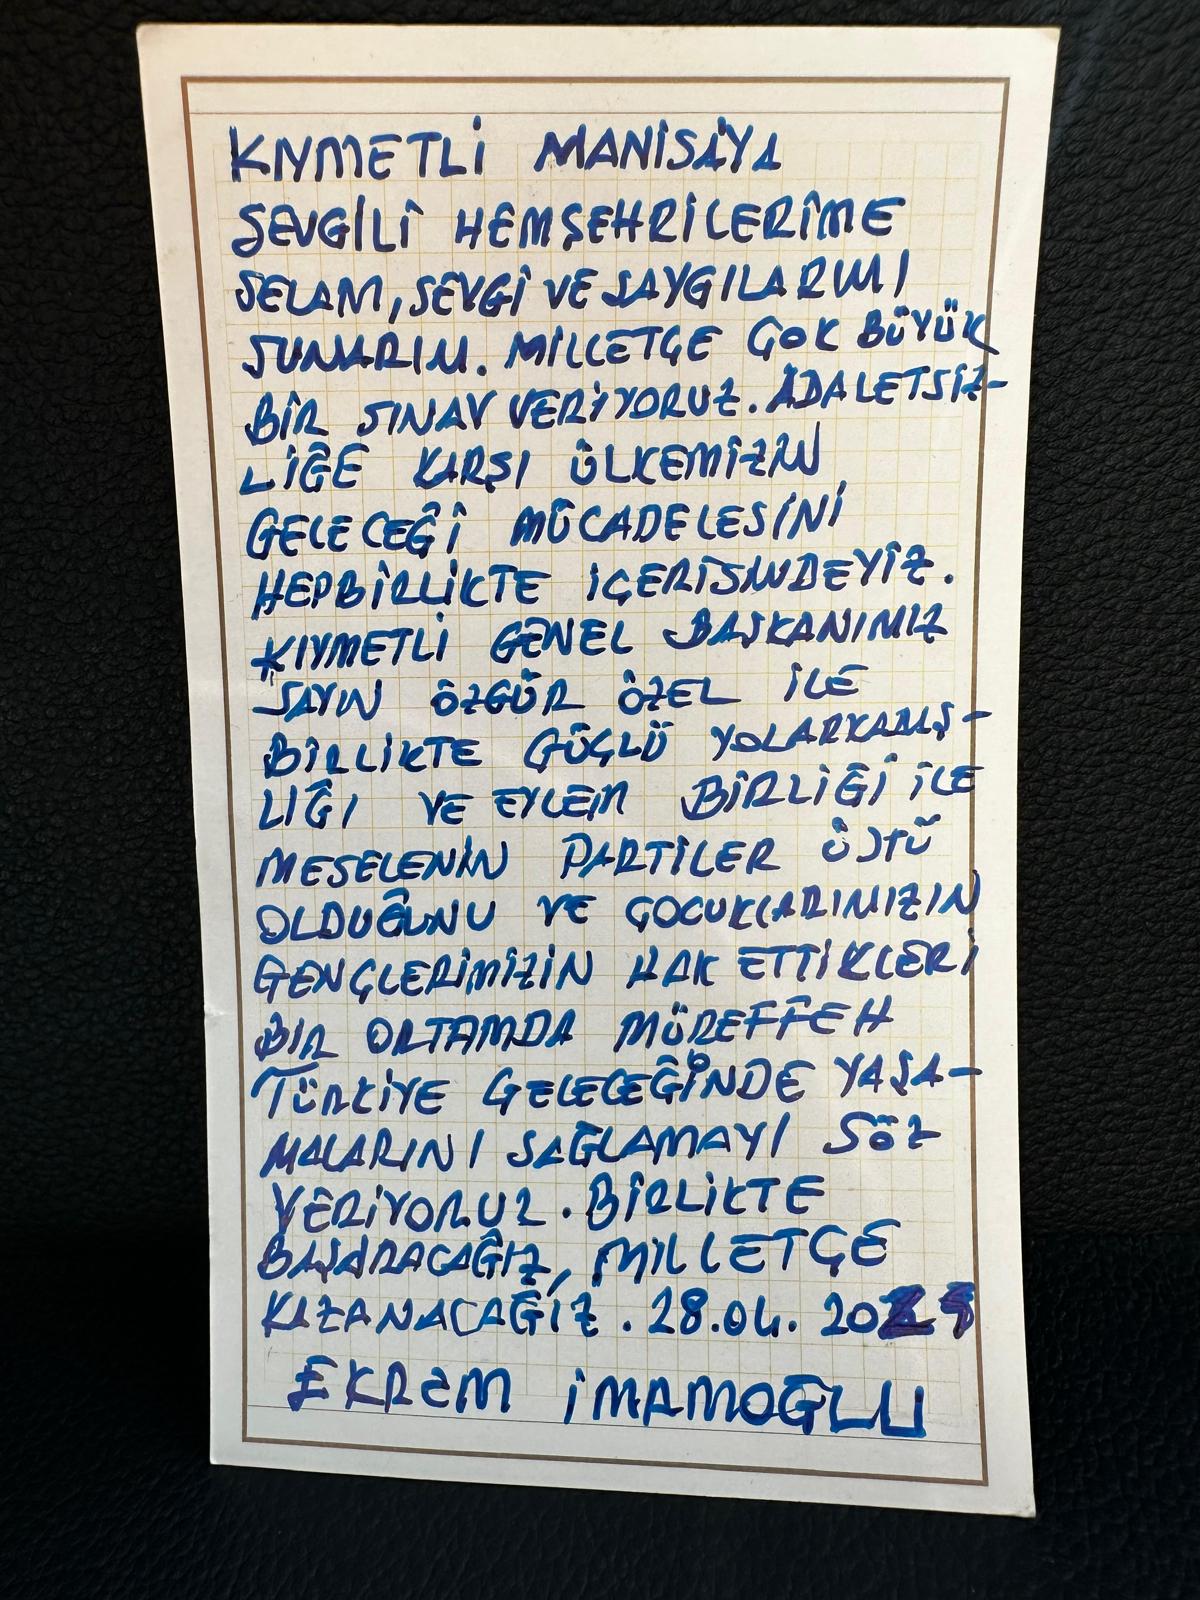 KIYMETLİ MANİSA'YA
SEVGİLİ HEMŞEHRİLERİME
SELAM, SEVGİ VE SAYGILARIMI
SUNARIM. MİLLETÇE ÇOK BÜYÜK
BİR SINAV VERİYORUZ. ADALETSİZ-
LİĞE KARŞI ÜLKEMİZİN
GELECEĞİ MÜCADELESİNİ
HEPBİRLİKTE İÇERİSİNDEYİZ.
KIYMETLİ GENEL BAŞKANIMIZ
SAYIN ÖZGÜR ÖZEL İLE
BİRLİKTE GÜÇLÜ YOLARKADAŞ-
LIĞI VE EYLEM BİRLİĞİ İLE
MESELENİN PARTİLER ÜSTÜ
OLDUĞUNU VE ÇOCUKLARIMIZIN
GENÇLERİMİZİN HAK ETTİKLERİ
BİR ORTAMDA MÜREFFEH
TÜRKİYE GELECEĞİNDE YAŞA-
MALARINI SAĞLAMAYI SÖZ
VERİYORUZ. BİRLİKTE
BAŞARACAĞIZ, MİLLETÇE
KAZANACAĞIZ. 28.04.
EKREM İMAMOĞLU